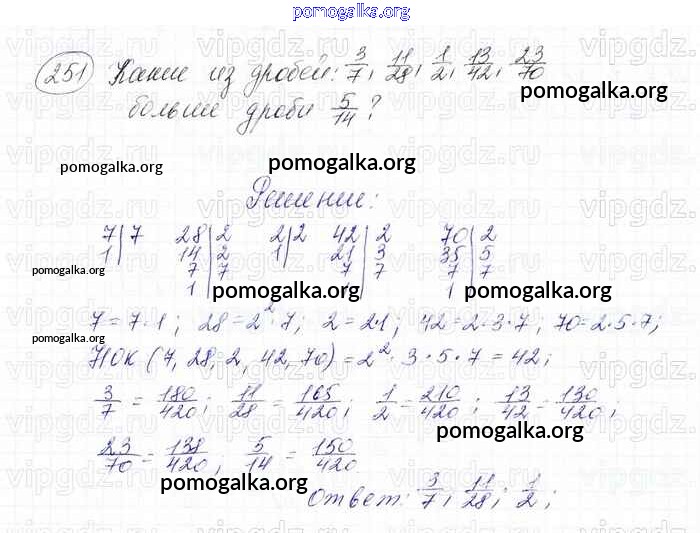 pomogalka.org
251 Какие из дробей: 3/7, 11/28, 1/2, 13/42, 23/70
больше дроби 5/14?
pomogalka.org
pomogalka.org
pomogalka.org
Решение:
7|7 28|2 2|2 42|2 70|2
1| 14|2 1| 21|3 35|5
7|7 7|7 7|7
1| 1|
pomogalka.org
pomogalka.org
pomogalka.org
7=7·1; 28=2²·7; 2=2·1; 42=2·3·7; 70=2·5·7;
pomogalka.org
НОК (7, 28, 2, 42, 70) = 2²·3·5·7 = 42;
3/7 = 180/420; 11/28 = 165/420; 1/2 = 210/420; 13/42 = 130/420;
pomogalka.org
23/70 = 138/420; 5/14 = 150/420
pomogalka.org
Ответ: 3/7; 11/28; 1/2;